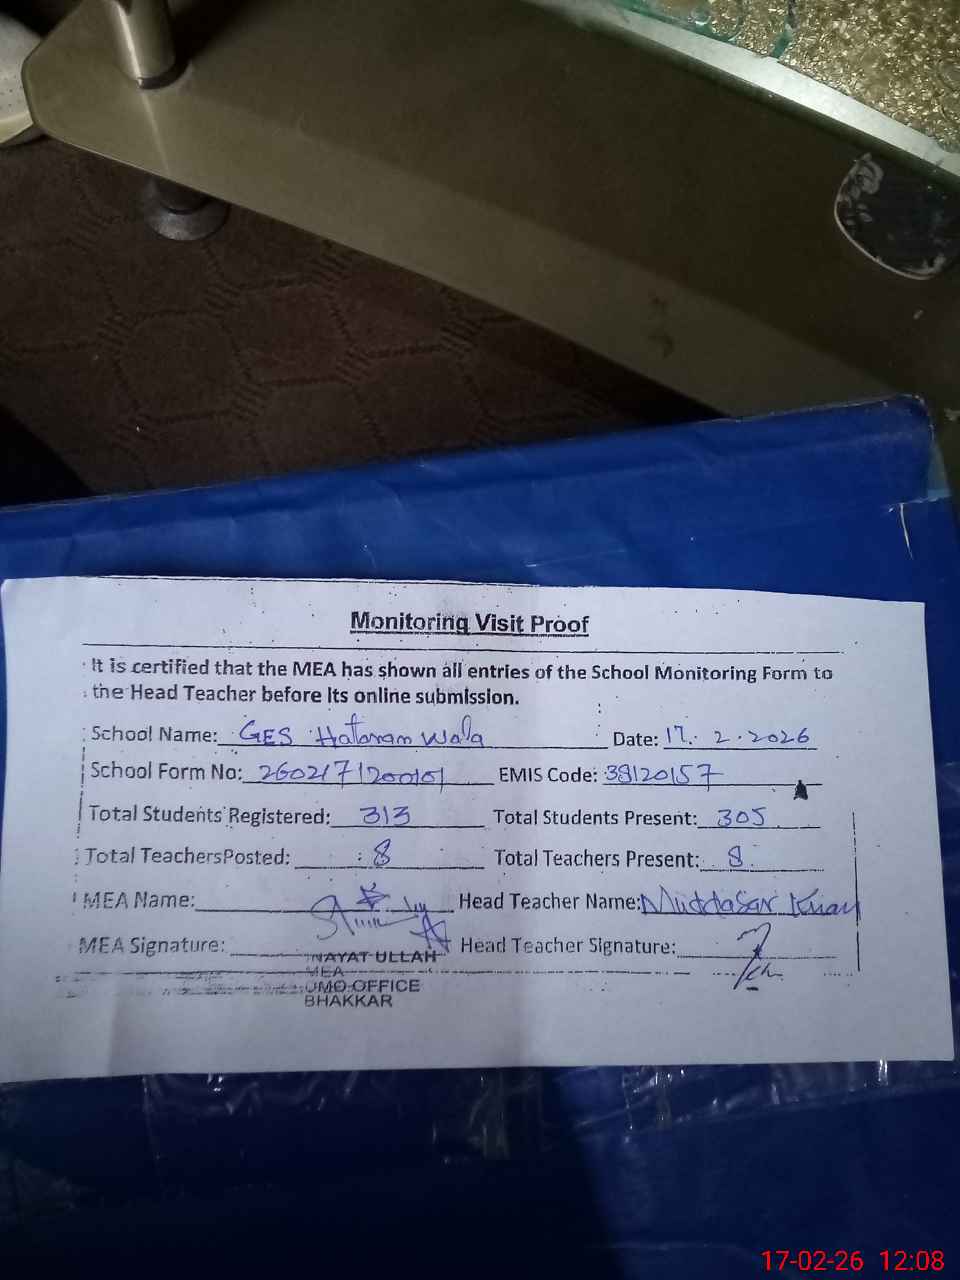 Monitoring Visit Proof
It is certified that the MEA has shown all entries of the School Monitoring Form to
the Head Teacher before its online submission.
School Name: GES Hatanam Wala Date: 17.2.2026
School Form No: 260217120101 EMIS Code: 38120157
Total Students Registered: 313 Total Students Present: 305
Total TeachersPosted: 8 Total Teachers Present: 8
MEA Name: Head Teacher Name: Muddasar Khan
MEA Signature: Head Teacher Signature:
INAYAT ULLAH
MEA
DMO OFFICE
BHAKKAR
17-02-26 12:08